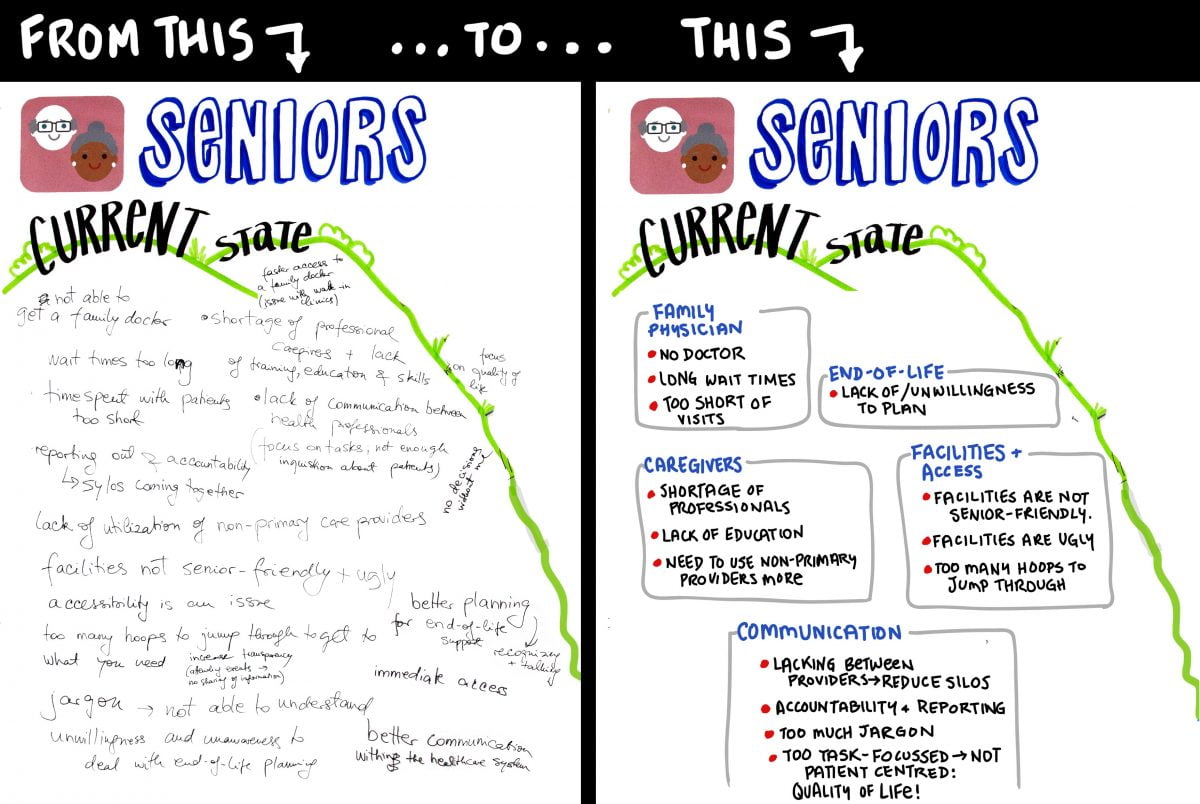 FROM THIS ...TO... THIS
SENIORS
CURRENT STATE
faster access to
a family doctor
(issue with walk-in
clinics)
not able to
get a family docker
• shortage of professional
caregivers + lack
of training, education & skills
wait times too long
focus
on quality of
life
time spent with patients
too short
• lack of communication between
health professionals
(focus on tasks, not enough
inquisition about patients)
no decisions
without me
reporting out & accountability
↳ sylos coming together
lack of utilization of non-primary care providers
facilities not senior-friendly + ugly
accessibility is an issue
too many hoops to jump through to get to
what you need
increase transparency
(attending events →
no sharing of information)
better planning
for end-of-life
support
recognizing
+ talking
immediate access
jargon → not able to understand
unwillingness and unawareness to
deal with end-of-life planning
better communication
withing the healthcare system
SENIORS
CURRENT STATE
FAMILY
PHYSICIAN
• NO DOCTOR
• LONG WAIT TIMES
• TOO SHORT OF
VISITS
END-OF-LIFE
• LACK OF/UNWILLINGNESS
TO PLAN
CAREGIVERS
• SHORTAGE OF
PROFESSIONALS
• LACK OF EDUCATION
• NEED TO USE NON-PRIMARY
PROVIDERS MORE
FACILITIES +
ACCESS
• FACILITIES ARE NOT
SENIOR-FRIENDLY.
• FACILITIES ARE UGLY
• TOO MANY HOOPS TO
JUMP THROUGH
COMMUNICATION
• LACKING BETWEEN
PROVIDERS → REDUCE SILOS
• ACCOUNTABILITY + REPORTING
• TOO MUCH JARGON
• TOO TASK-FOCUSSED → NOT
PATIENT CENTRED:
QUALITY OF LIFE!